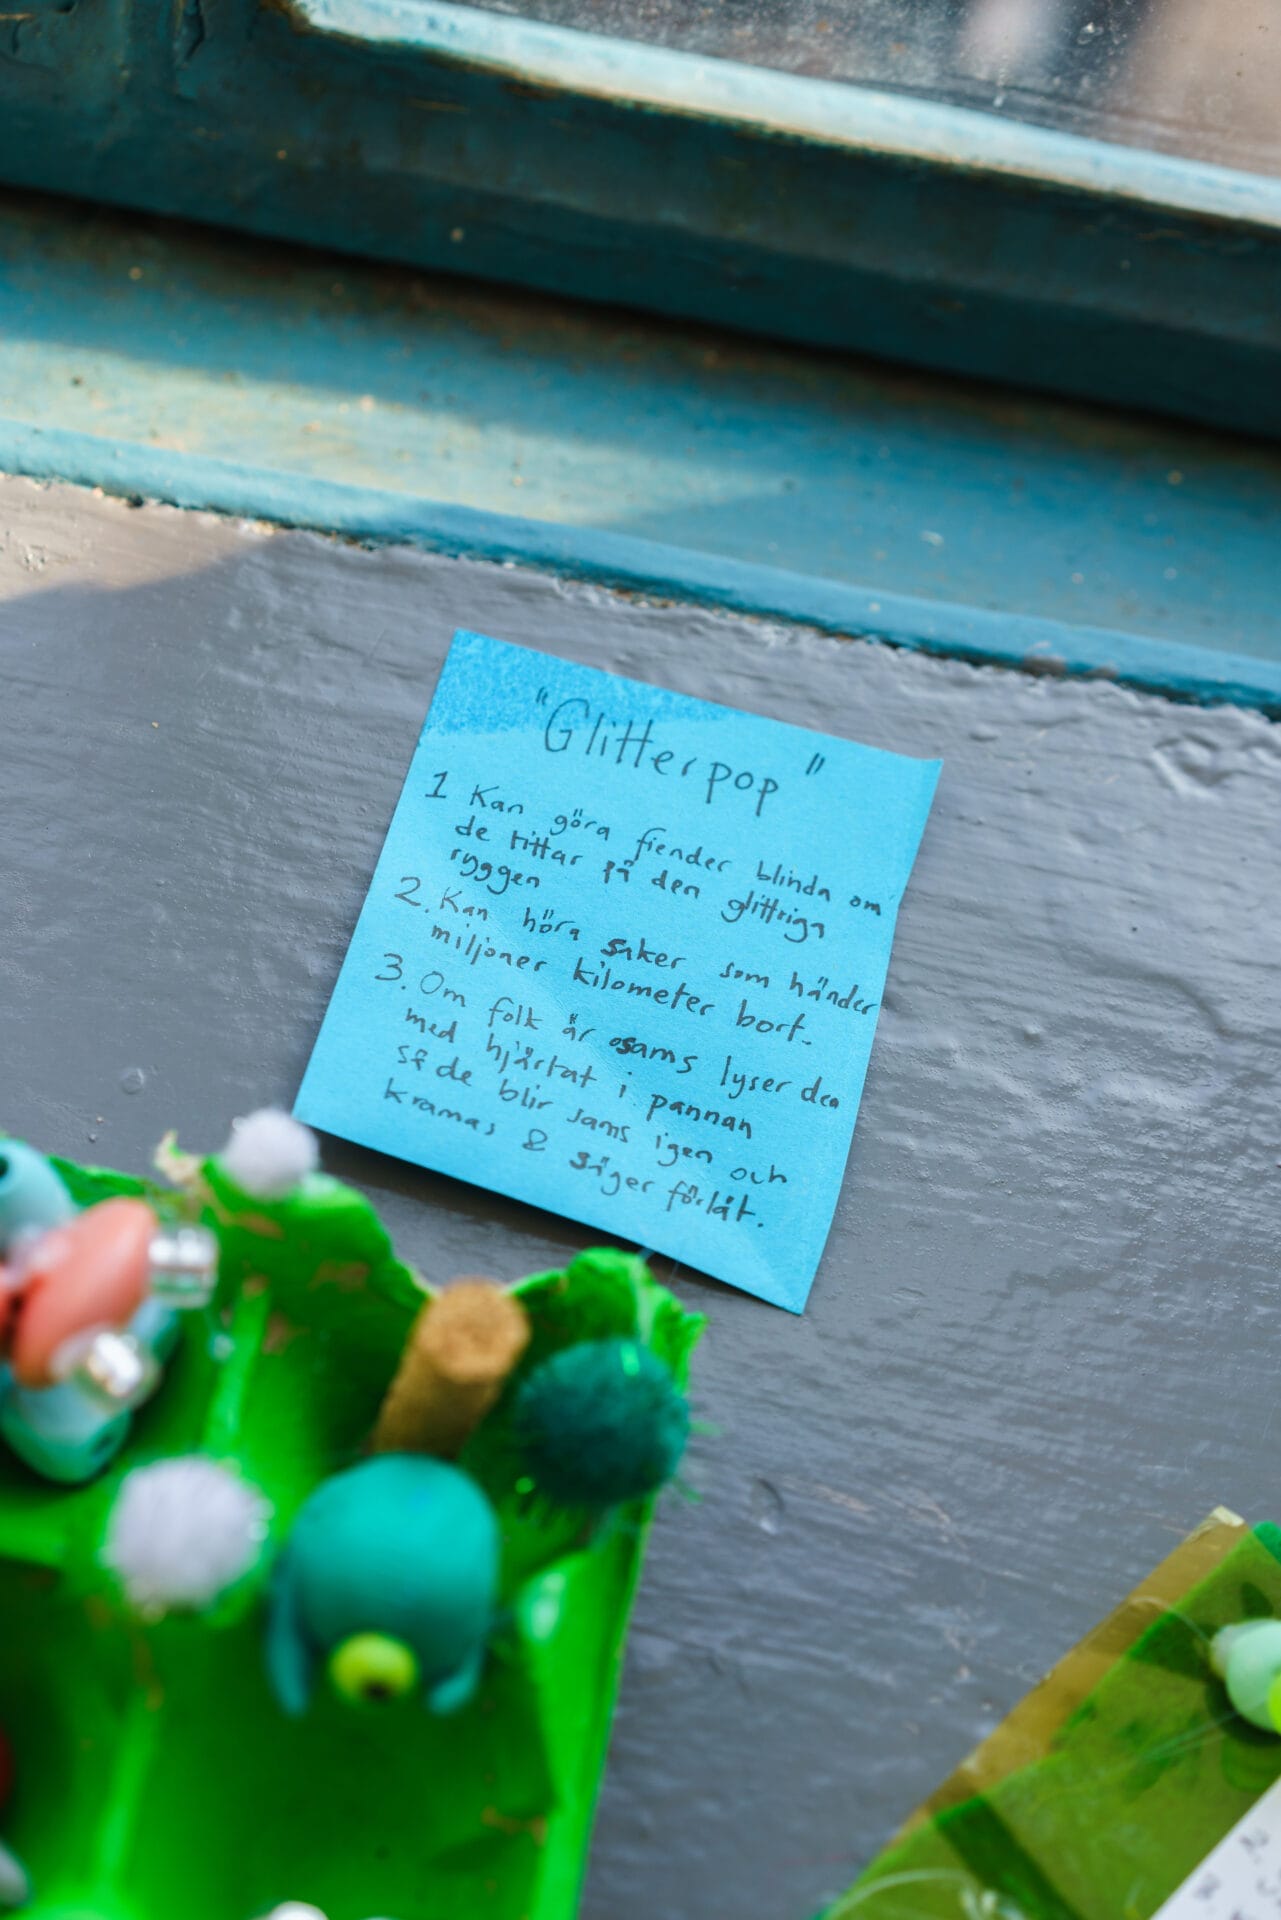 "Glitterpop"
1 Kan göra fiender blinda om
de tittar på den glittriga
ryggen
2. Kan höra saker som händer
miljoner kilometer bort.
3. Om folk är osams lyser den
med hjärtat i pannan
så de blir sams igen och
kramas & säger förlåt.